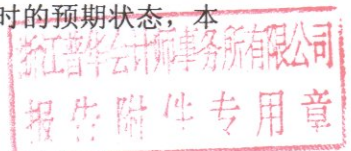 时的预期状态，本
浙江普华会计师事务所有限公司
报告附件专用章